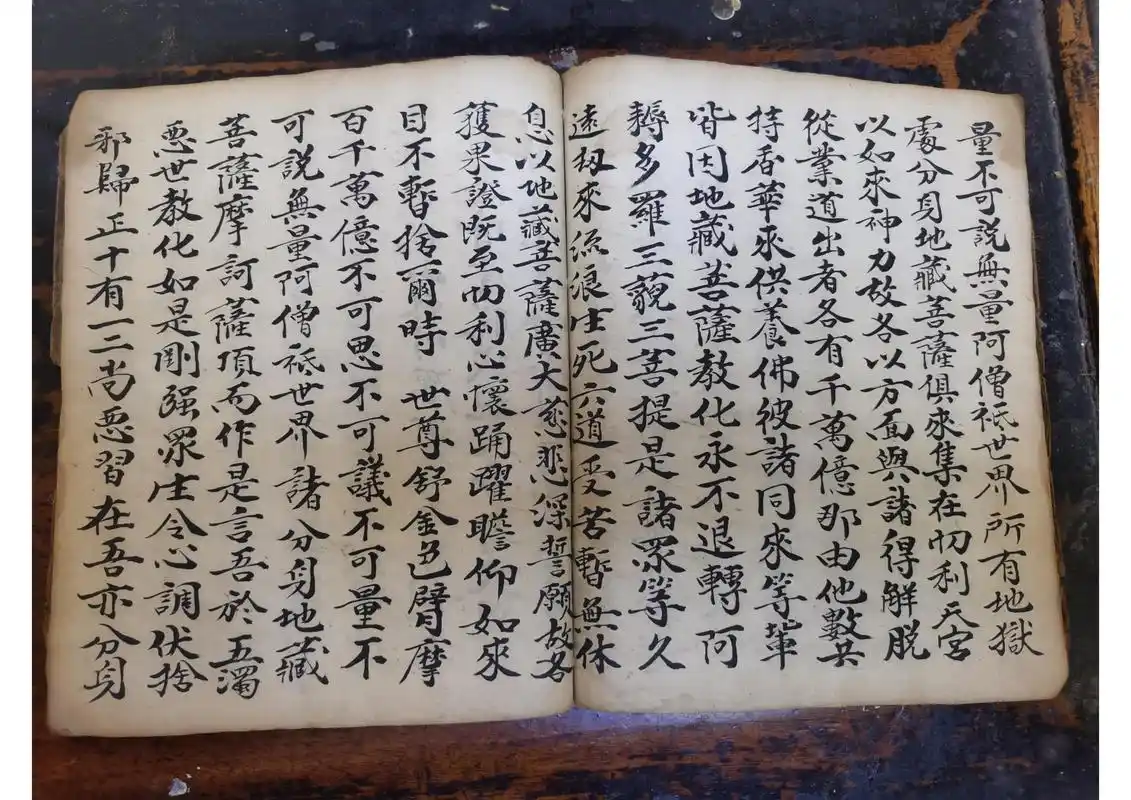 量不可說無量阿僧祇世界所有地獄
處分身地藏菩薩俱來集在忉利天宮
以如來神力故各以方面與諸得解脫
從業道出者各有千萬億那由他數共
持香華來供養佛彼諸同來等軰
皆因地藏菩薩教化永不退轉阿
耨多羅三藐三菩提是諸眾等久
遠刼來流浪生死六道受苦暫無休
息以地藏菩薩廣大慈悲深誓願故各
獲果證既至忉利心懷踊躍瞻仰如來
目不暫捨爾時 世尊舒金色臂摩
百千萬億不可思不可議不可量不
可說無量阿僧祇世界諸分身地藏
菩薩摩訶薩頂而作是言吾於五濁
惡世教化如是剛强眾生令心調伏捨
邪歸正十有一二尚惡習在吾亦分身